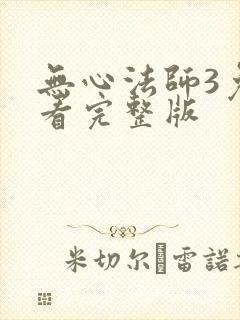 無心法師3
看完整版
米切尔 雷諾